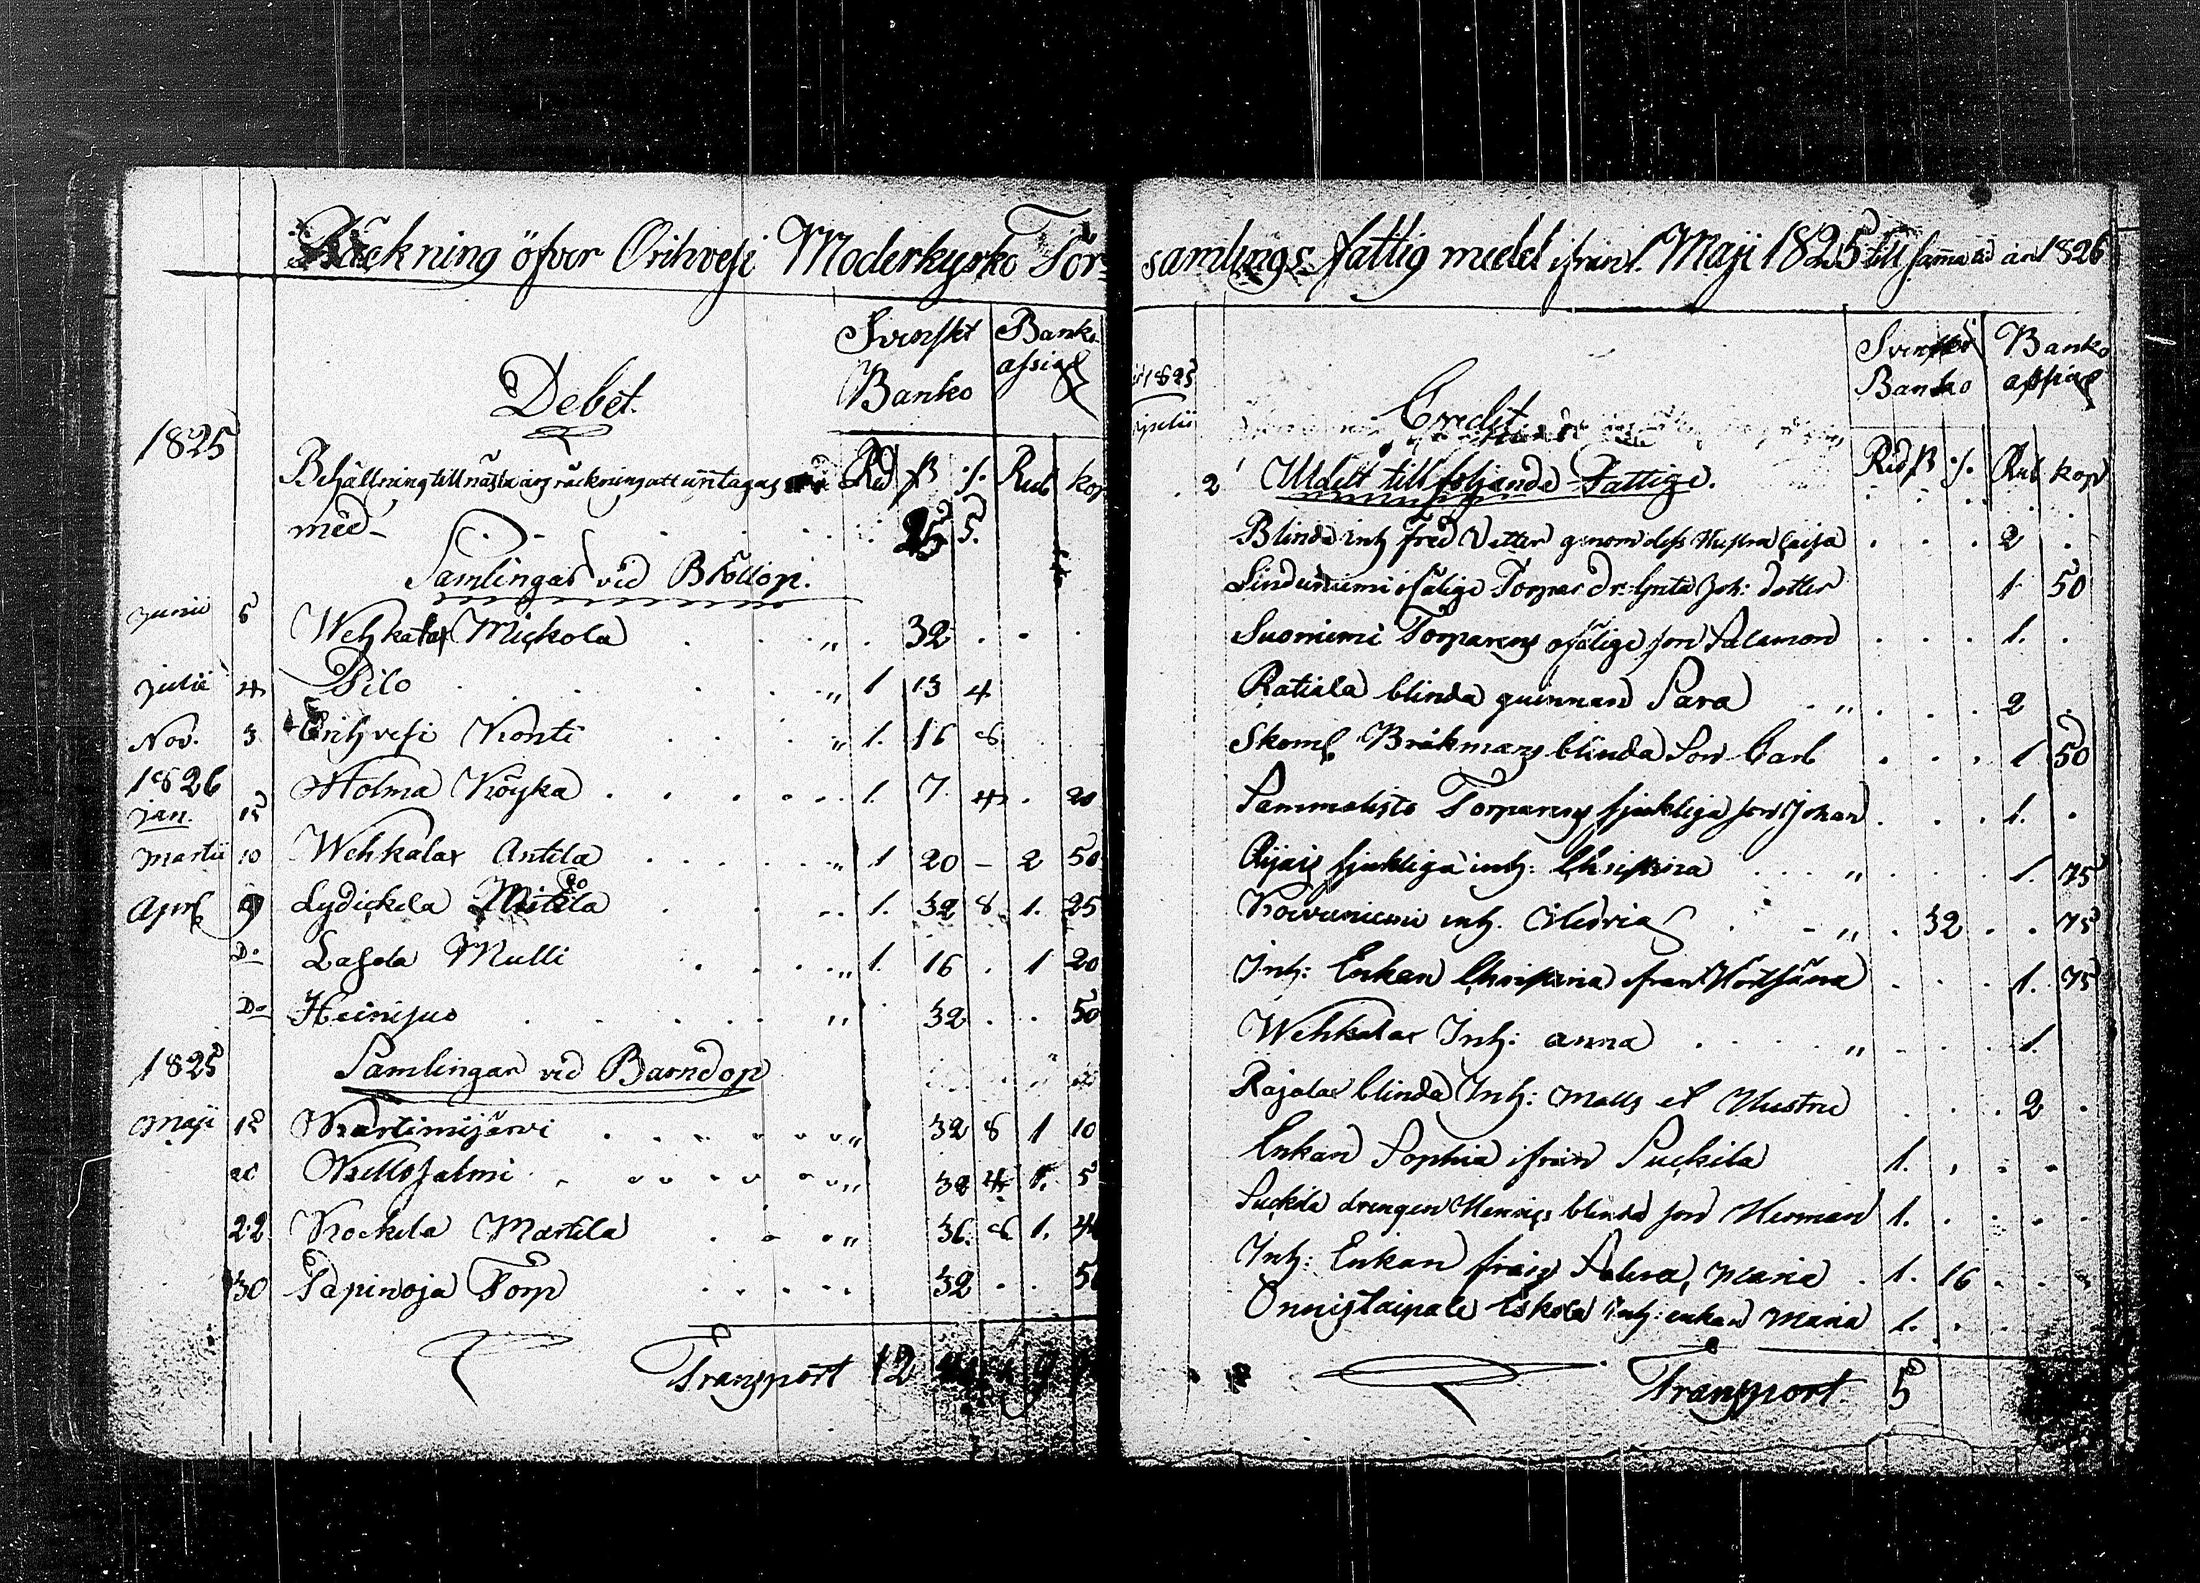 Räckning öfver Orihvesi Moderkyrko För
Svenskt Banko
Banko assig
Debet.
1825
Behållning till nästa års räckning att untagas
Rd ß :/. Rub kop
med 25 5.
Samlingar vid Bröllop.
Junii 5 Wehkalax Mickola 32
Julii 4 Pilo 1 13 4
Nov. 3 Orihvesi Konti 1. 16 8
1826
Jan. 15 Holma Köyka 1. 7. 4 20
Martii 10 Wehkalax Antila 1 20 - 2 50
Apr 9 Lydickela 1. 32 8 1. 25
Do Lasola Mulli 1. 16 1 20
Do Heinisuo 32 50
1825
Samlingar vid Barndop
Maji 12 Martimijärvi 32 8 1 10
Kellosalmi 32 4 1. 5
22 Kockila Martila 36. 8 1.
30 Papinoja Torp 32
Transport 12
samlings fattig medel ifrån 1. Maji 1825 till samma tid år 1826
Svenskt Banko
Banko assig
1825
Credit
Rd ß :/. Rub kop
2 Utdelt till följande Fattige.
Blinda inh Fred Vetter genom dess Hustru Caisa 2
ofälige Torpar dr: Greta Joh: dotter 1 50
Suoniemi Torparens ofälige son Salamon 1.
Ratiala blinda quinnan Sara 2
Skom Bräkmans blinda Son Carl 1 50
Sammalisto Torparens sjukliga son Johan 1.
sjukliga inh: Christina 1. 75
Koivuniemi inh. Maria 32 75
Inh: Enkan Christina ifrån 1. 75
Wehkalax Inh: Anna 1.
Rajalax blinda Inh: Matts et Hustru 2
Enkan Sophia ifrån Suckila 1.
Suckila drengen Henrics blinda son Herman 1.
Inh: Enkan från Maria 1. 16
Onnistaipale Eskola Inh: enkan Maria 1.
Transport. 5